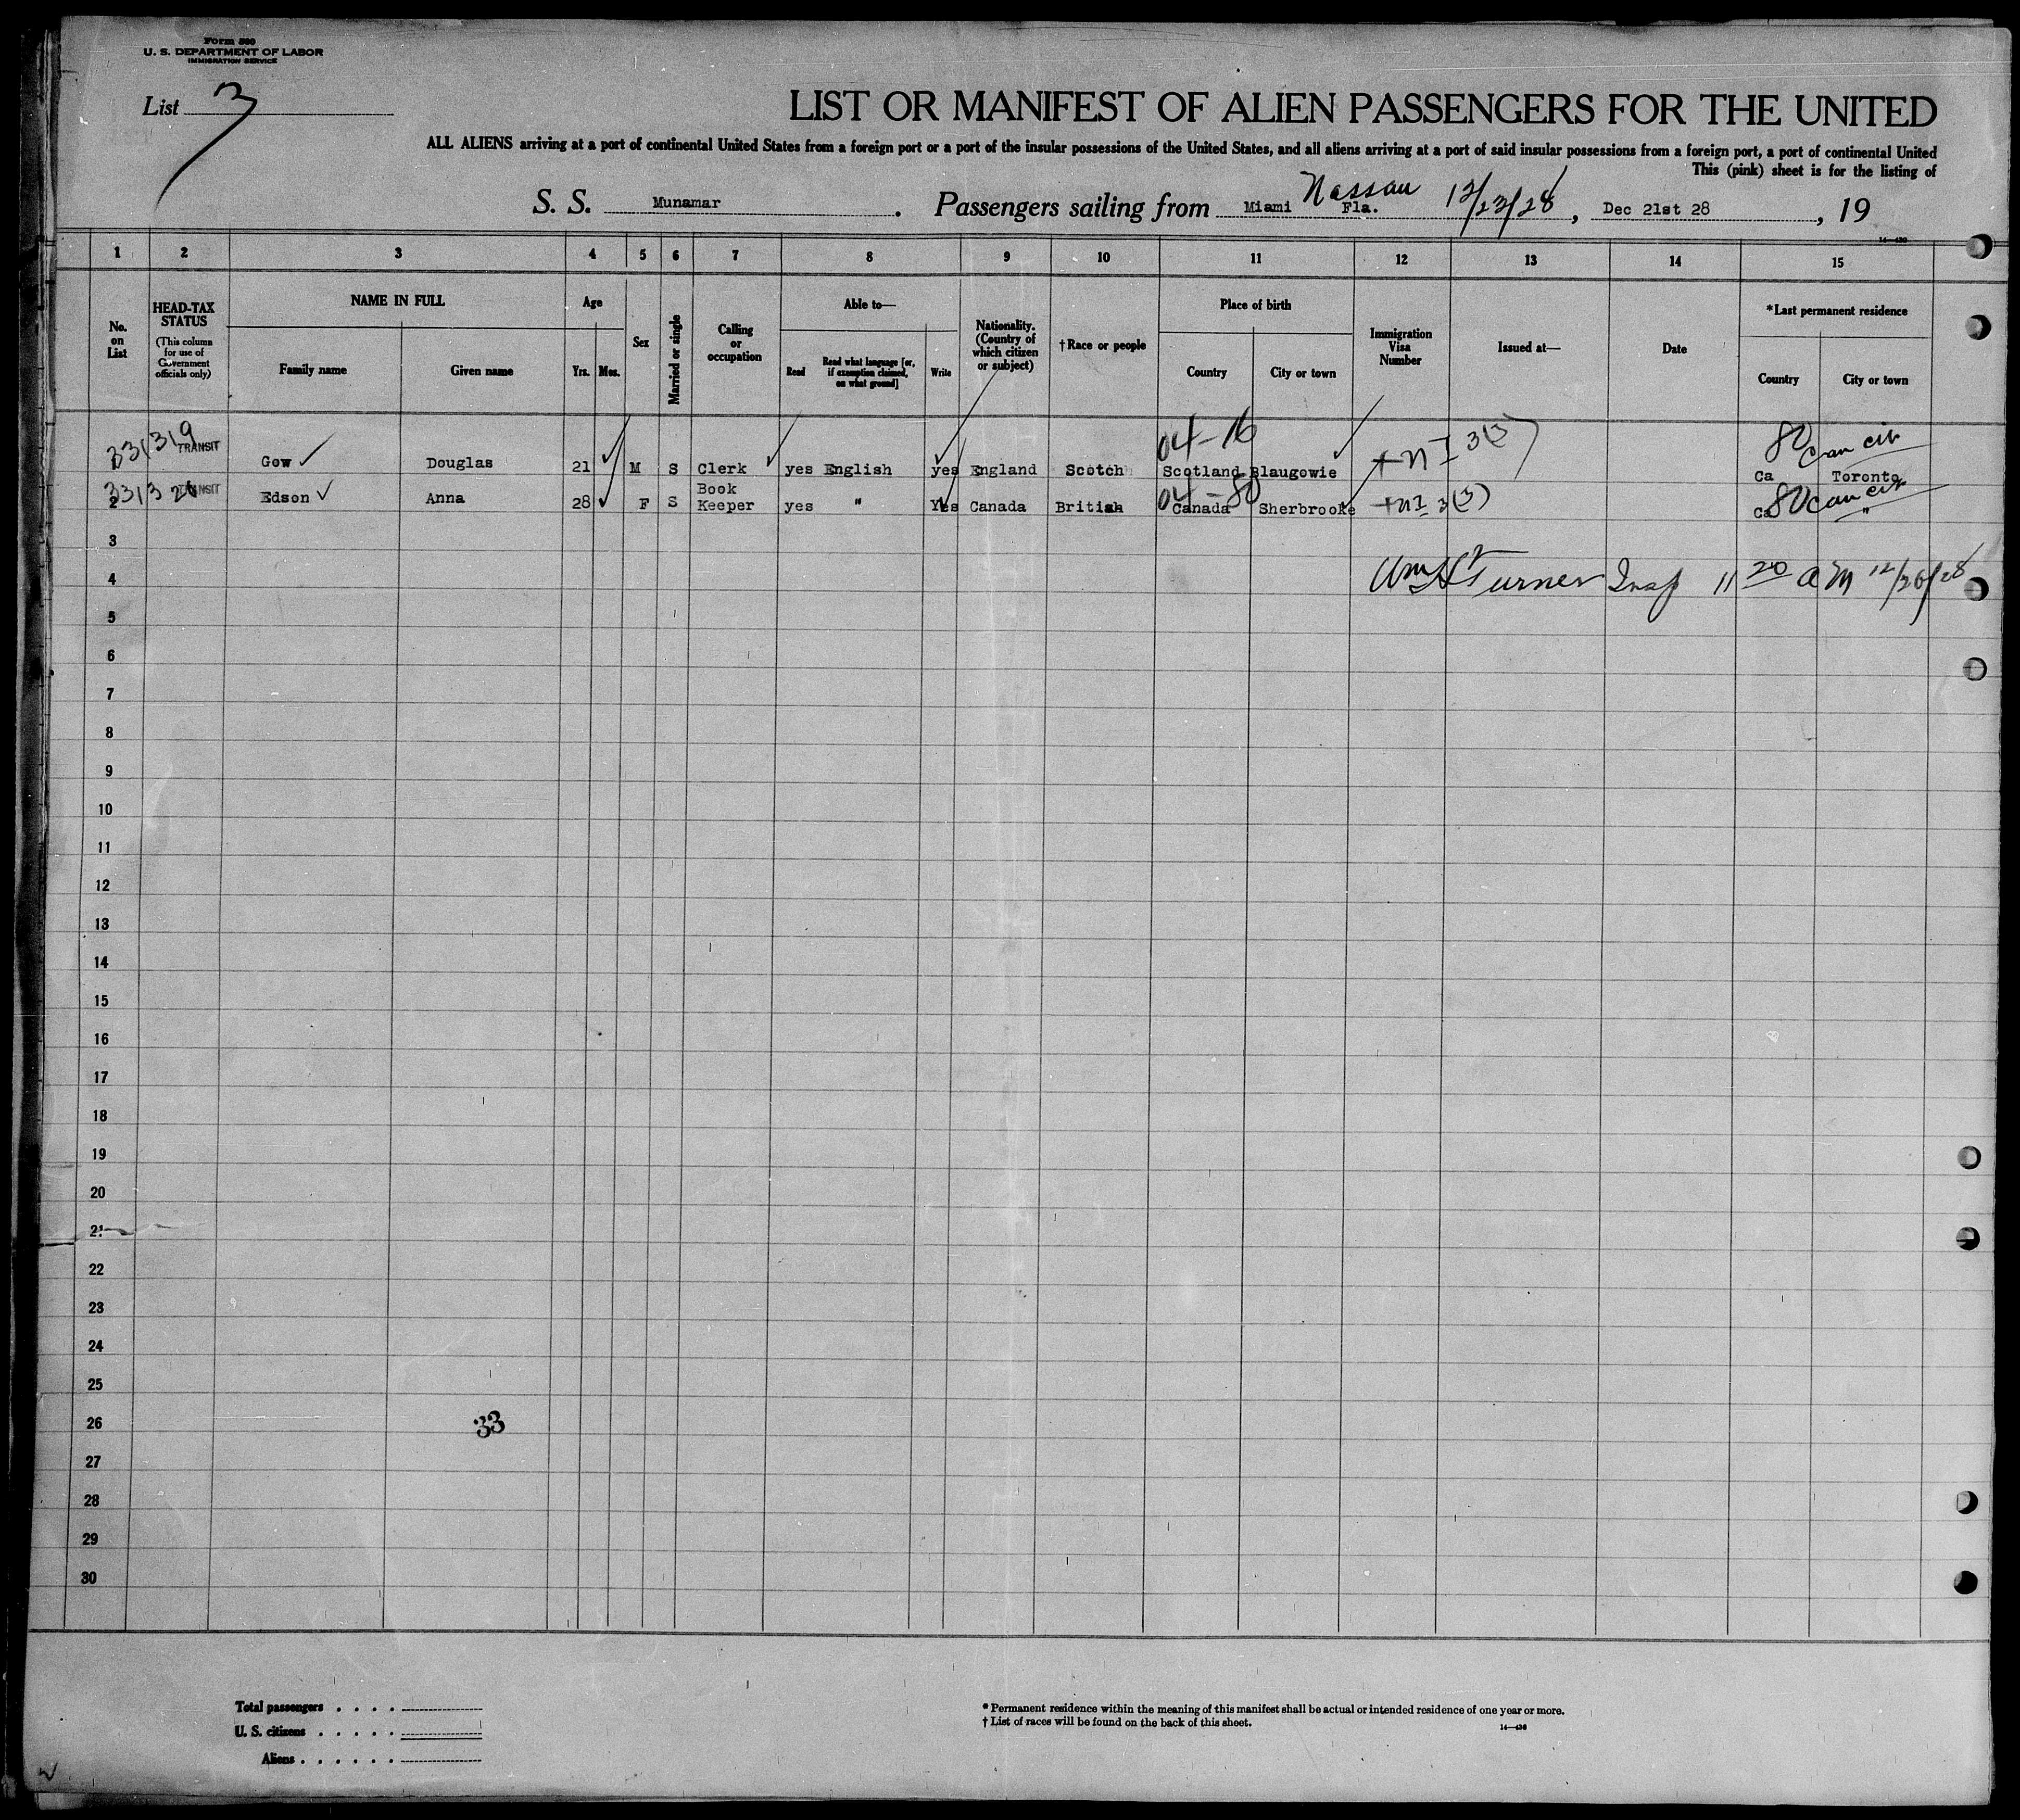 Form 500
U. S. DEPARTMENT OF LABOR
IMMIGRATION SERVICE
List 3
LIST OR MANIFEST OF ALIEN PASSENGERS FOR THE UNITED
ALL ALIENS arriving at a port of continental United States from a foreign port or a port of the insular possessions of the United States, and all aliens arriving at a port of said insular possessions from a foreign port, a port of continental United
This (pink) sheet is for the listing of
S. S. Munamar. Passengers sailing from Miami Fla. Nassau 12/23/28, Dec 21st 28, 19
14—430
1 2 3 4 5 6 7 8 9 10 11 12 13 14 15
No. on List
HEAD-TAX STATUS (This column for use of Government officials only)
NAME IN FULL
Family name Given name
Age
Yrs. Mos.
Sex
Married or single
Calling or occupation
Able to—
Read Read what language [or, if exemption claimed, on what ground] Write
Nationality. (Country of which citizen or subject)
†Race or people
Place of birth
Country City or town
Immigration Visa Number
Issued at—
Date
*Last permanent residence
Country City or town
331319 TRANSIT Gow ✓ Douglas 21 ✓ M S Clerk ✓ yes English yes England Scotch 04-16 Scotland Blaugowie ✓ + N I 3(3) 80 Can cit Ca Toronto
2 TRANSIT Edson ✓ Anna 28 ✓ F S Book Keeper yes " Yes Canada British 04-80 Canada Sherbrooke + N I 3(3) 80 Can cit Ca "
3
4 Turner Insp 11 20 a m 12/26/28
5
6
7
8
9
10
11
12
13
14
15
16
17
18
19
20
21
22
23
24
25
26 33
27
28
29
30
Total passengers . . . .
U. S. citizens . . . . .
Aliens . . . . . .
* Permanent residence within the meaning of this manifest shall be actual or intended residence of one year or more.
† List of races will be found on the back of this sheet.
14—430